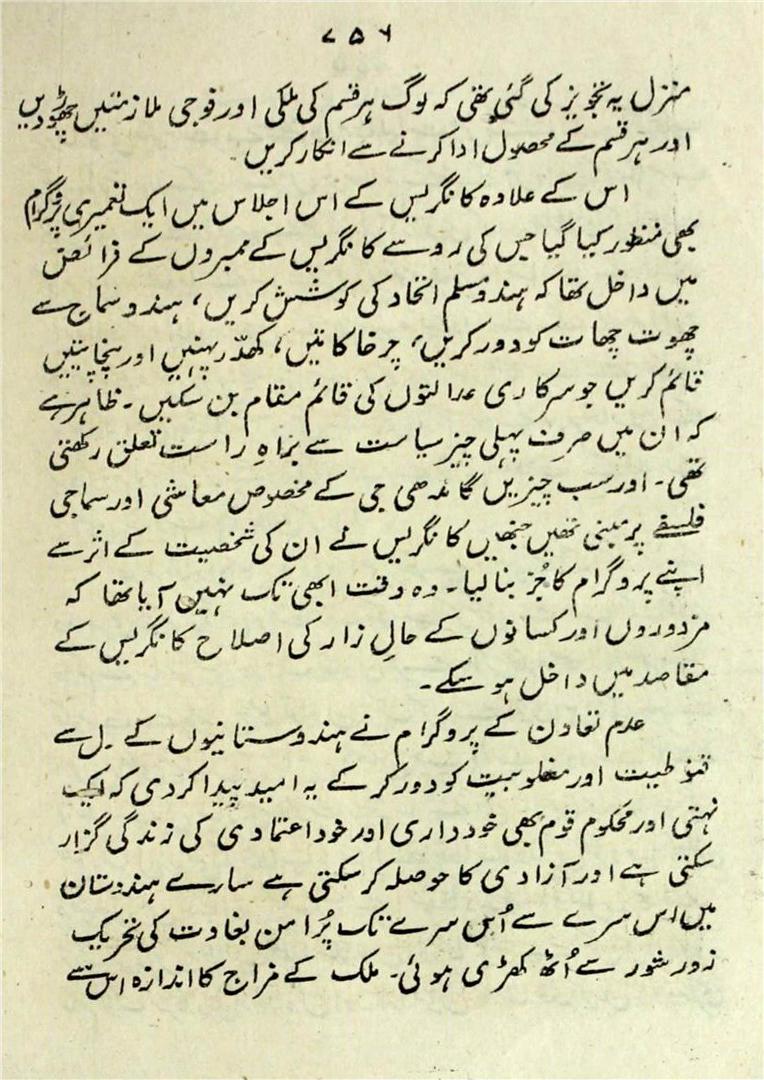 ۷۵۶
منزل یہ تجویز کی گئی تھی کہ لوگ ہر قسم کی ملکی اور فوجی ملازمتیں چھوڑ دیں
اور ہر قسم کے محصول ادا کرنے سے انکار کریں۔
اس کے علاوہ کانگریس کے اس اجلاس میں ایک تعمیری پروگرام
بھی منظور کیا گیا جس کی رو سے کانگریس کے ممبروں کے فرائض
میں داخل تھا کہ ہندو مسلم اتحاد کی کوشش کریں، ہندو سماج سے
چھوت چھات کو دور کریں، چرخا کاتیں، کھدّر پہنیں اور پنچایتیں
قائم کریں جو سرکاری عدالتوں کی قائم مقام بن سکیں۔ ظاہر ہے
کہ ان میں صرف پہلی چیز سیاست سے براہِ راست تعلق رکھتی
تھی۔ اور سب چیزیں گاندھی جی کے مخصوص معاشی اور سماجی
فلسفے پر مبنی تھیں جنھیں کانگریس نے ان کی شخصیت کے اثر سے
اپنے پروگرام کا جُز بنا لیا۔ وہ وقت ابھی تک نہیں آیا تھا کہ
مزدوروں اور کسانوں کے حالِ زار کی اصلاح کانگریس کے
مقاصد میں داخل ہو سکے۔
عدم تعاون کے پروگرام نے ہندوستانیوں کے دل سے
قنوطیت اور مغلوبیت کو دور کر کے یہ امید پیدا کر دی کہ ایک
نہتی اور محکوم قوم بھی خودداری اور خود اعتمادی کی زندگی گزار
سکتی ہے اور آزادی کا حوصلہ کر سکتی ہے سارے ہندوستان
میں اس سرے سے اُس سرے تک پُرامن بغاوت کی تحریک
زور شور سے اُٹھ کھڑی ہوئی۔ ملک کے مزاج کا اندازہ اس سے